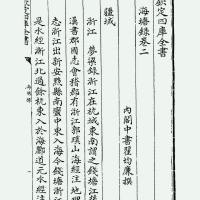 欽定四庫全書
海塘錄卷二
內閣中書翟均廉撰
疆域
浙江 夢粱錄浙江在杭城東南謂之錢塘江
漢書郡國志會稽郡有浙江郭璞山海經注地理
志浙江出新安黟縣南蠻中東入海今錢塘浙江
是水經浙江北過餘杭東入於海酈道元水經注